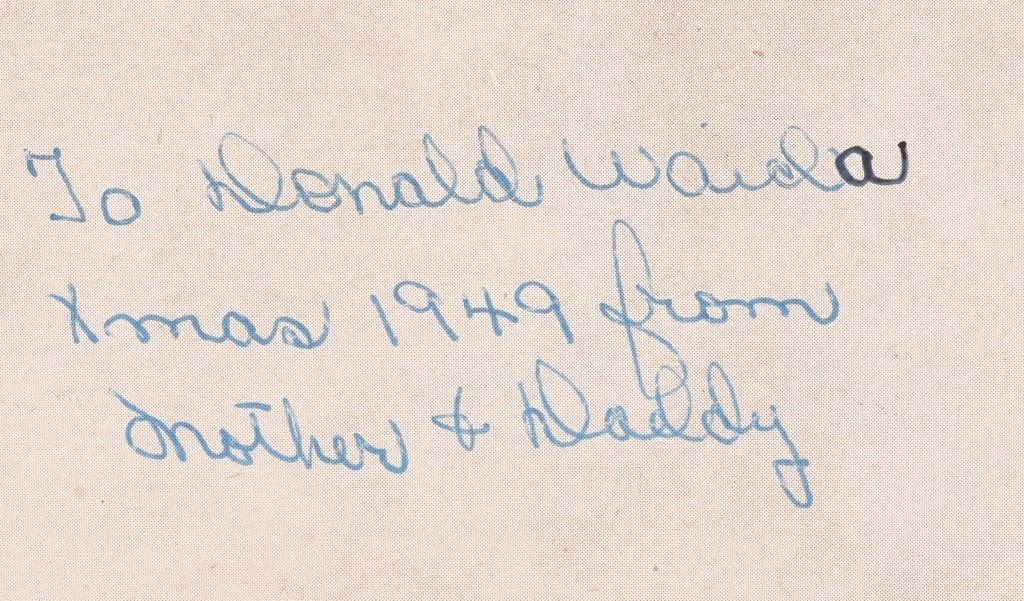 To Donald Waida
Xmas 1949 from
Mother & Daddy